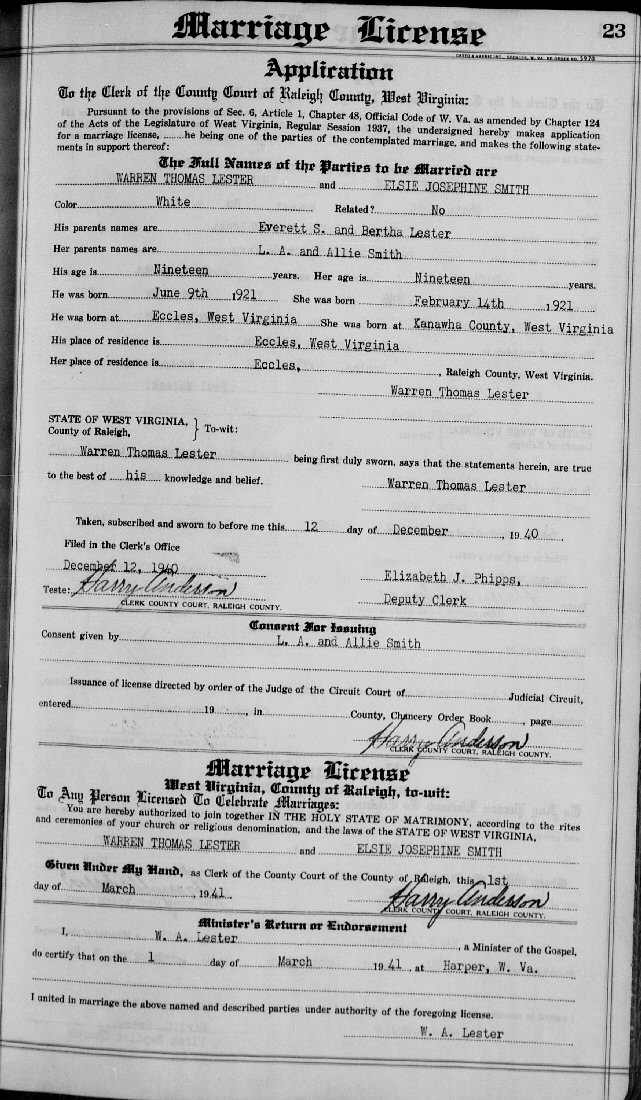 Marriage License
23
CASTO & HARRIS INC., SPENCER, W. VA. RE ORDER NO. 5970
Application
To the Clerk of the County Court of Raleigh County, West Virginia:
Pursuant to the provisions of Sec. 6, Article 1, Chapter 48, Official Code of W. Va. as amended by Chapter 124
of the Acts of the Legislature of West Virginia, Regular Session 1937, the undersigned hereby makes application
for a marriage license, ........he being one of the parties of the contemplated marriage, and makes the following state-
ments in support thereof:
The Full Names of the Parties to be Married are
WARREN THOMAS LESTER and ELSIE JOSEPHINE SMITH
Color White Related? No
His parents names are Everett S. and Bertha Lester
Her parents names are L. A. and Allie Smith
His age is Nineteen years. Her age is Nineteen years.
He was born June 9th 1921 She was born February 14th 1921
He was born at Eccles, West Virginia She was born at Kanawha County, West Virginia
His place of residence is Eccles, West Virginia
Her place of residence is Eccles, , Raleigh County, West Virginia.
Warren Thomas Lester
STATE OF WEST VIRGINIA, } To-wit:
County of Raleigh,
Warren Thomas Lester being first duly sworn, says that the statements herein, are true
to the best of his knowledge and belief.
Warren Thomas Lester
Taken, subscribed and sworn to before me this 12 day of December , 19 40
Filed in the Clerk's Office
December 12, 1940
Elizabeth J. Phipps,
Teste: Harry Anderson
Deputy Clerk
CLERK COUNTY COURT, RALEIGH COUNTY.
Consent For Issuing
Consent given by L. A. and Allie Smith
Issuance of license directed by order of the Judge of the Circuit Court of Judicial Circuit,
entered 19 , in County, Chancery Order Book , page
Harry Anderson
CLERK COUNTY COURT, RALEIGH COUNTY.
Marriage License
West Virginia, County of Raleigh, to-wit:
To Any Person Licensed To Celebrate Marriages:
You are hereby authorized to join together IN THE HOLY STATE OF MATRIMONY, according to the rites
and ceremonies of your church or religious denomination, and the laws of the STATE OF WEST VIRGINIA,
WARREN THOMAS LESTER and ELSIE JOSEPHINE SMITH
Given Under My Hand, as Clerk of the County Court of the County of Raleigh, this 1st
day of March , 19 41. Harry Anderson
CLERK COUNTY COURT, RALEIGH COUNTY.
Minister's Return or Endorsement
I, W. A. Lester , a Minister of the Gospel,
do certify that on the 1 day of March 19 41 , at Harper, W. Va.
I united in marriage the above named and described parties under authority of the foregoing license.
W. A. Lester